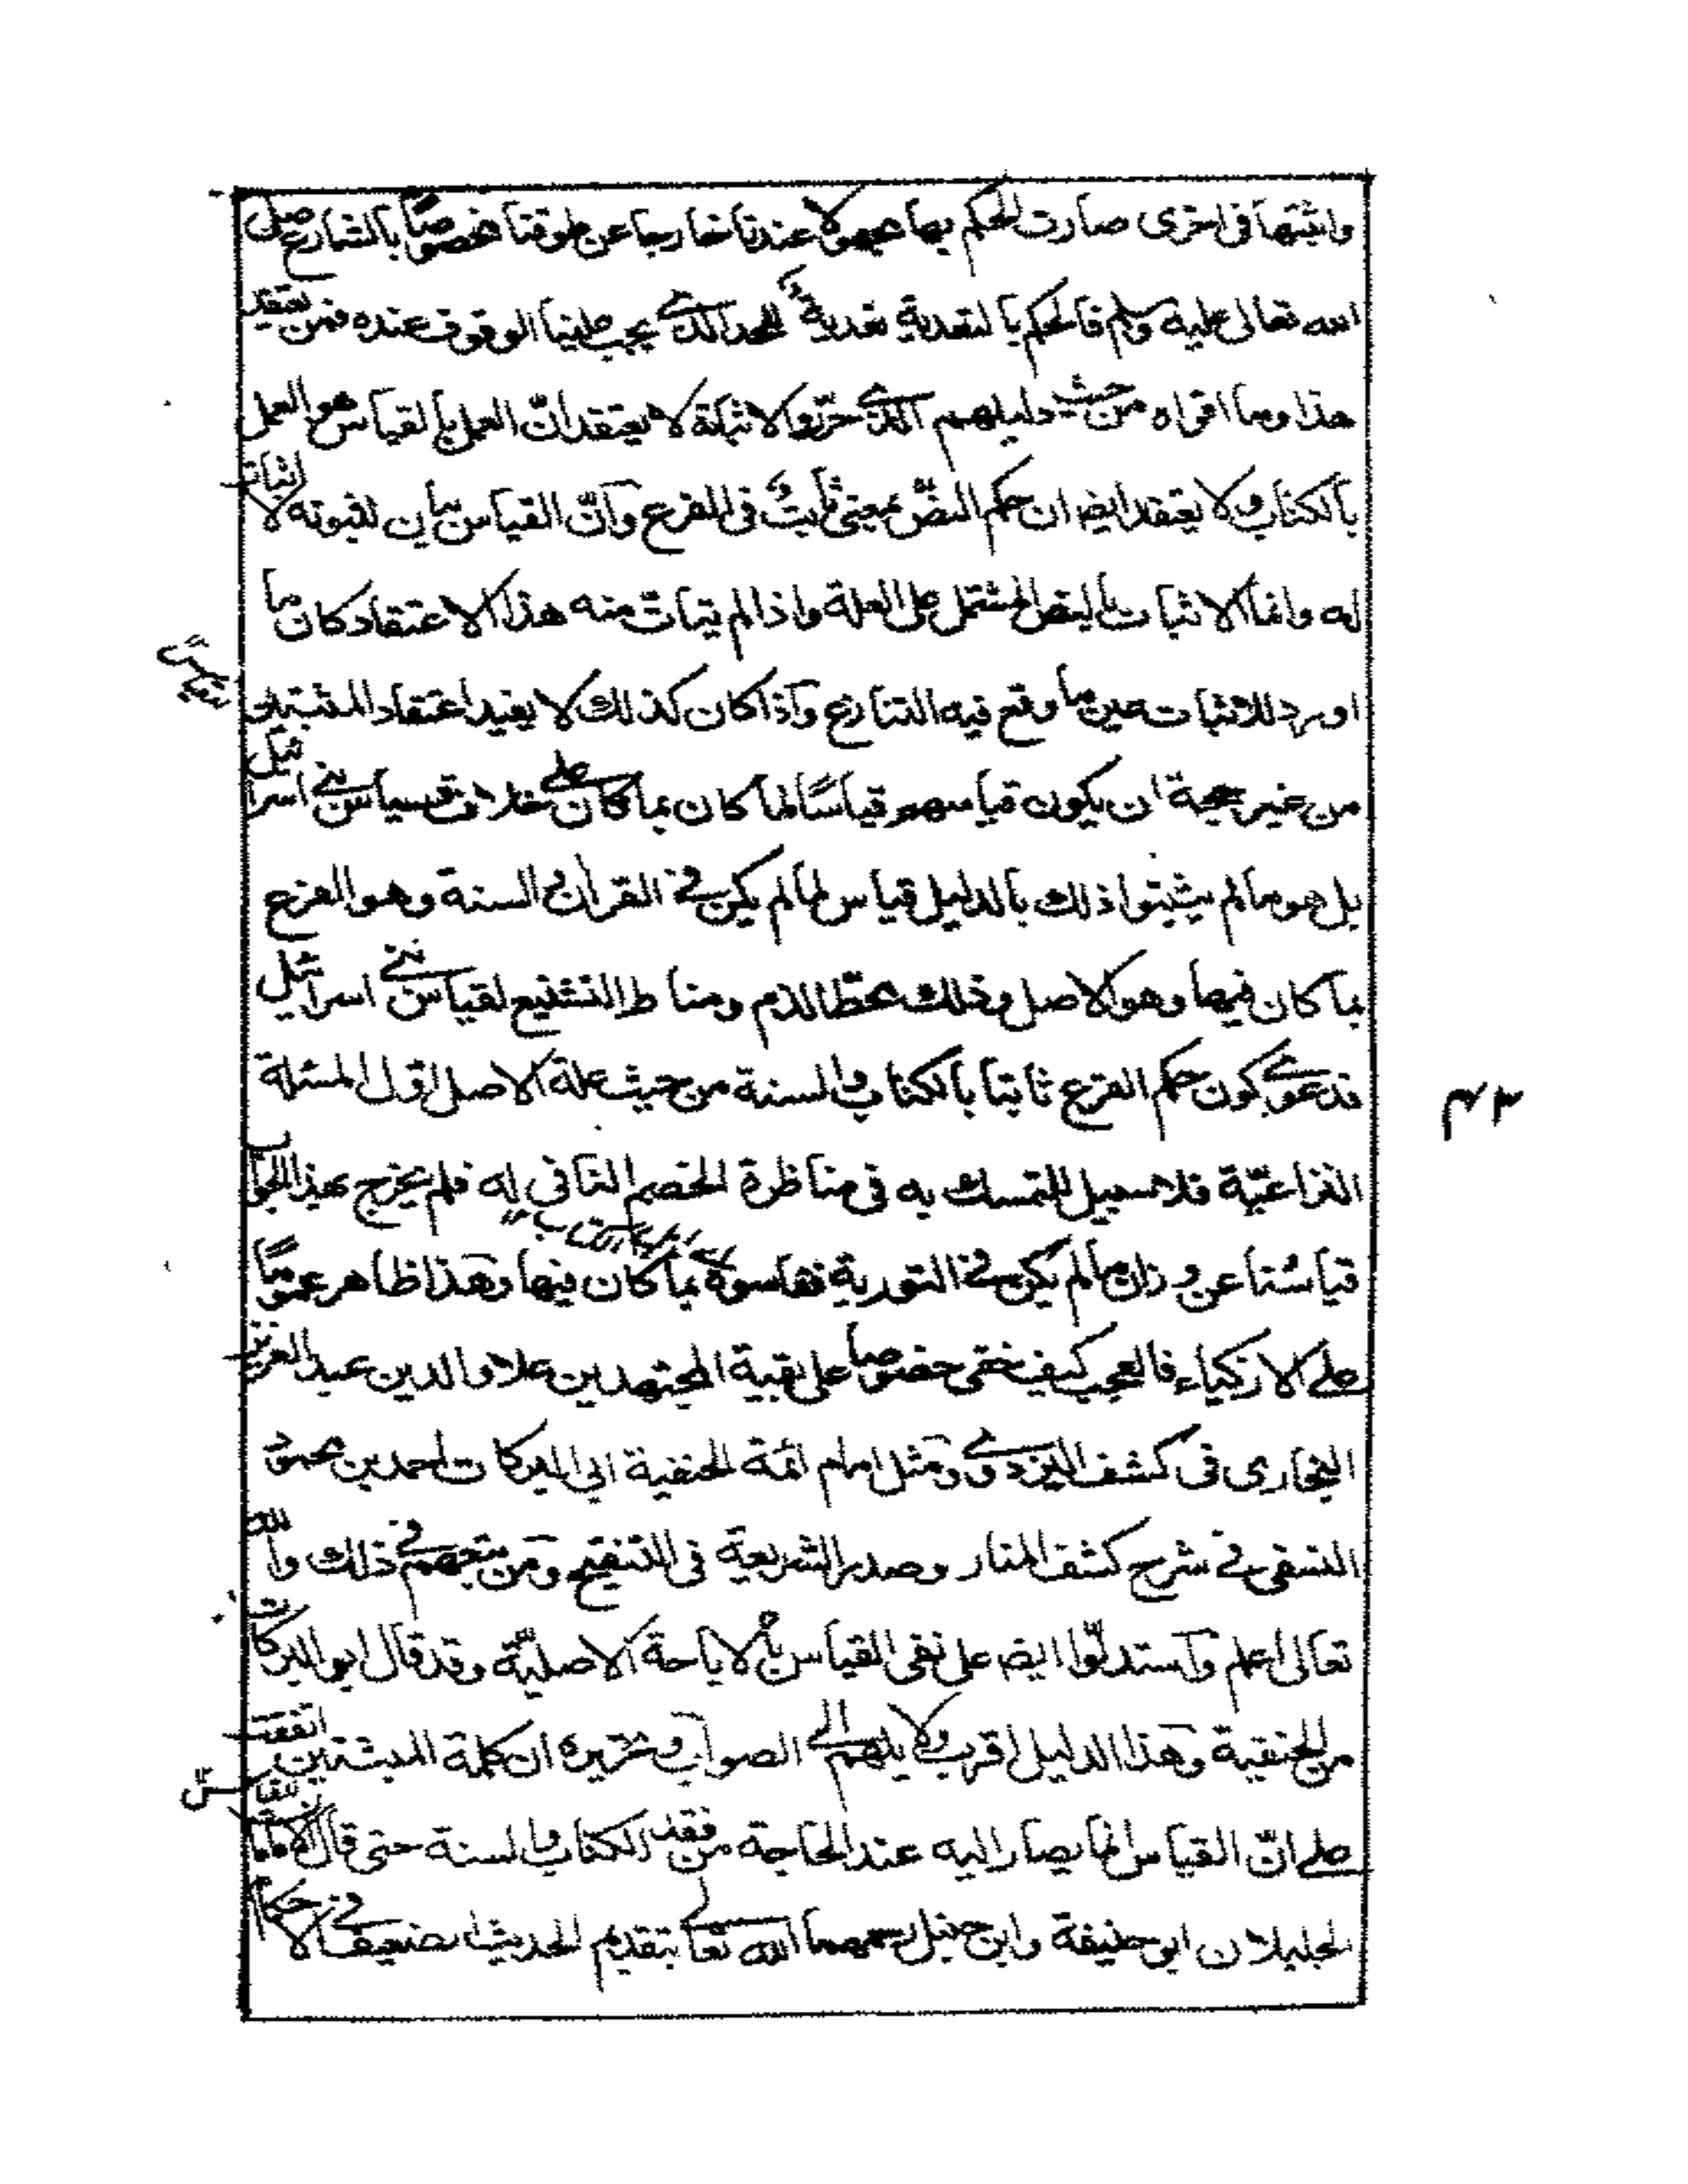 واثبتها فى اخرى صارت الحكم بها مجهولا عندنا خارجا عن طوقنا مخصوصًا بالشارع صلى
الله تعالى عليه وسلم فالحكم بالتعدية تعدية للحد الذى يجب علينا الوقوف عنده فمن يعتقد
هذا وما اقواه من حيث دليلهم الذى حرّروا لاثباته لا يعتقد انّ العمل بالقياس هو العمل
بالكتاب ولا يعتقد ايضا ان حكم النصّ بمعنى ثابتٌ فى الفرع وانّ القياس بيان لثبوته لا اثبات
له وانما الاثبات بالنص المشتمل على العلة واذا لم يتأت منه هذا الاعتقاد كان ما
اورد للاثبات عين ما وقع فيه التنازع واذا كان كذلك لا يفيد اعتقاد المثبتين
من غير حجة ان يكون قياسهم قياسًا لما كان بما كان على خلاف قياس بنى اسرائيل
بل هو ما لم يثبتوا ذلك بالدليل قياس لما لم يكن فى القرآن والسنة وهو الفرع
بما كان فيها وهو الاصل وذلك محطّ الذم ومناط التشنيع لقياس بنى اسرائيل
فدعوى كون حكم الفرع ثابتا بالكتاب والسنة من حيث علة الاصل اول المسئلة
النزاعيّة فلا سبيل للتمسك به فى مناظرة الخصم النافى له فلم يخرج بهذا الجواب
قياسنا عن وزان ما لم يكن فى التورية فقاسوه بما كان فيها وهذا ظاهر عمومًا
على الازكياء فالعجب كيف خفى خصوصا على بقية المجتهدين علاء الدين عبد العزيز
البخارى فى كشف البزدوى ومثل امام ائمة الحنفية ابى البركات احمد بن محمود
النسفى فى شرح كشف المنار وصدر الشريعة فى التنقيح ومن تبعهم فى ذلك والله
تعالى اعلم واستدلّوا ايضا على نفى القياس بالاباحة الاصليّة وقد قال ابو البركات
من الحنفية وهذا الدليل اقرب دلايلهم الى الصواب وتقريره ان كلمة المثبتين اتفقت
على انّ القياس انما يصار اليه عند الحاجة من فقد الكتاب والسنة حتى قال الامامان
الجليلان ابو حنيفة وابن حنبل رحمهما الله تعا بتقديم الحديث الضعيف فى الاحكام
٤٣